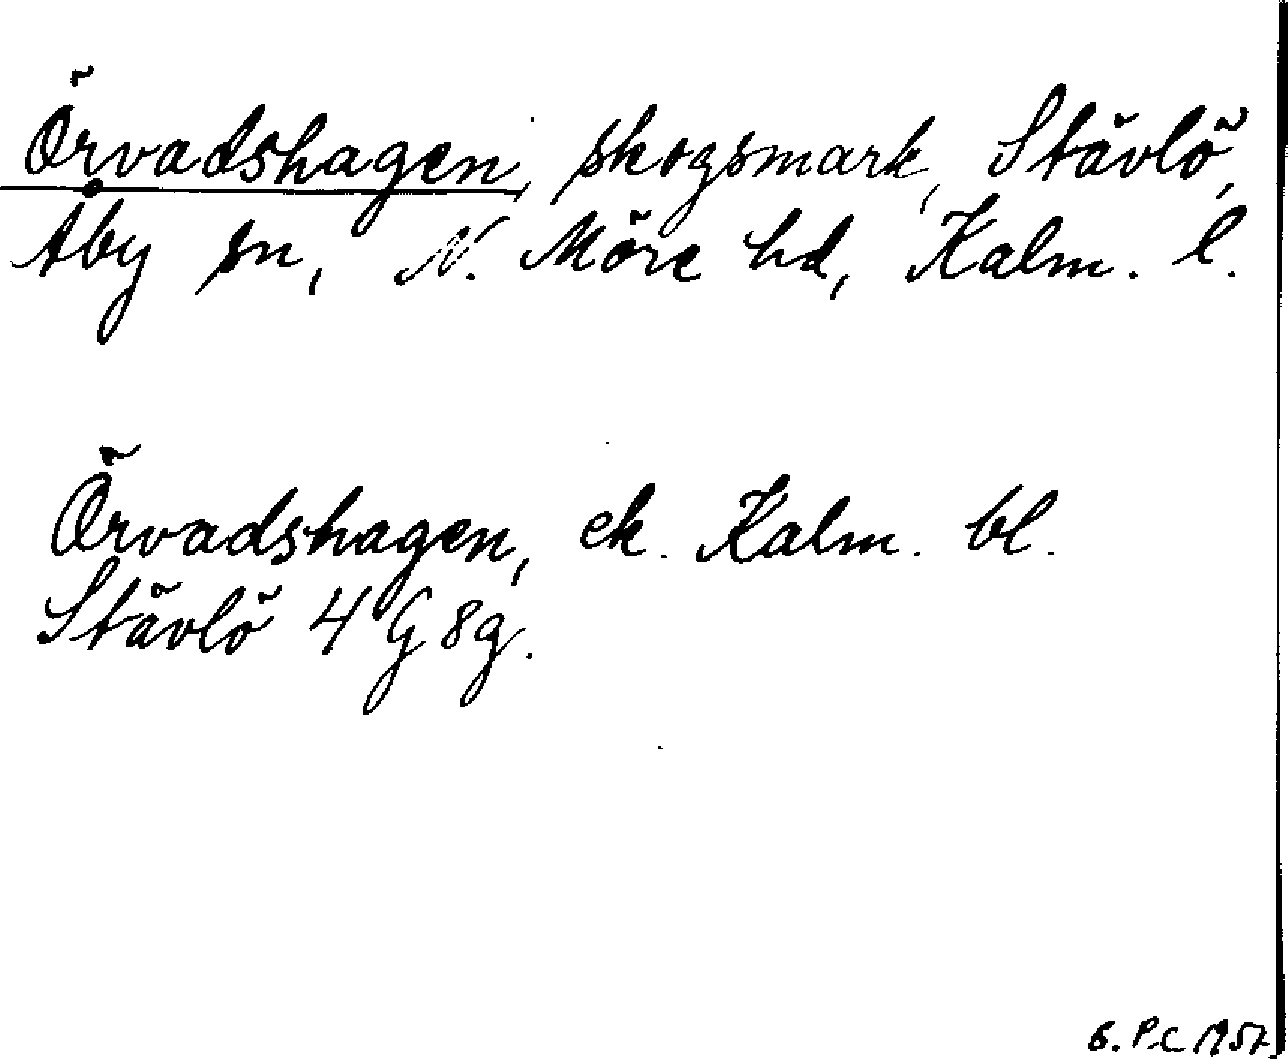 Örvadshagen, skogsmark, Stävlö,
Åby sn, N. Möre hd, Kalm. l.
Örvadshagen, ek. Kalm. bl.
Stävlö 4 G 8g.
B. P-C 1957